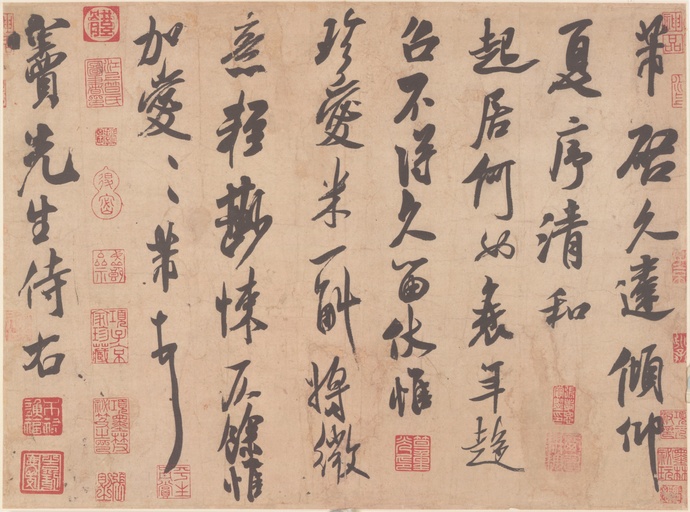 芾啓久違傾仰
夏序清和
起居何如衰年趍
召不得久留伏惟
珍愛米一斛將微
意輕尠悚仄餘惟
加愛〻芾頓首
竇先生侍右